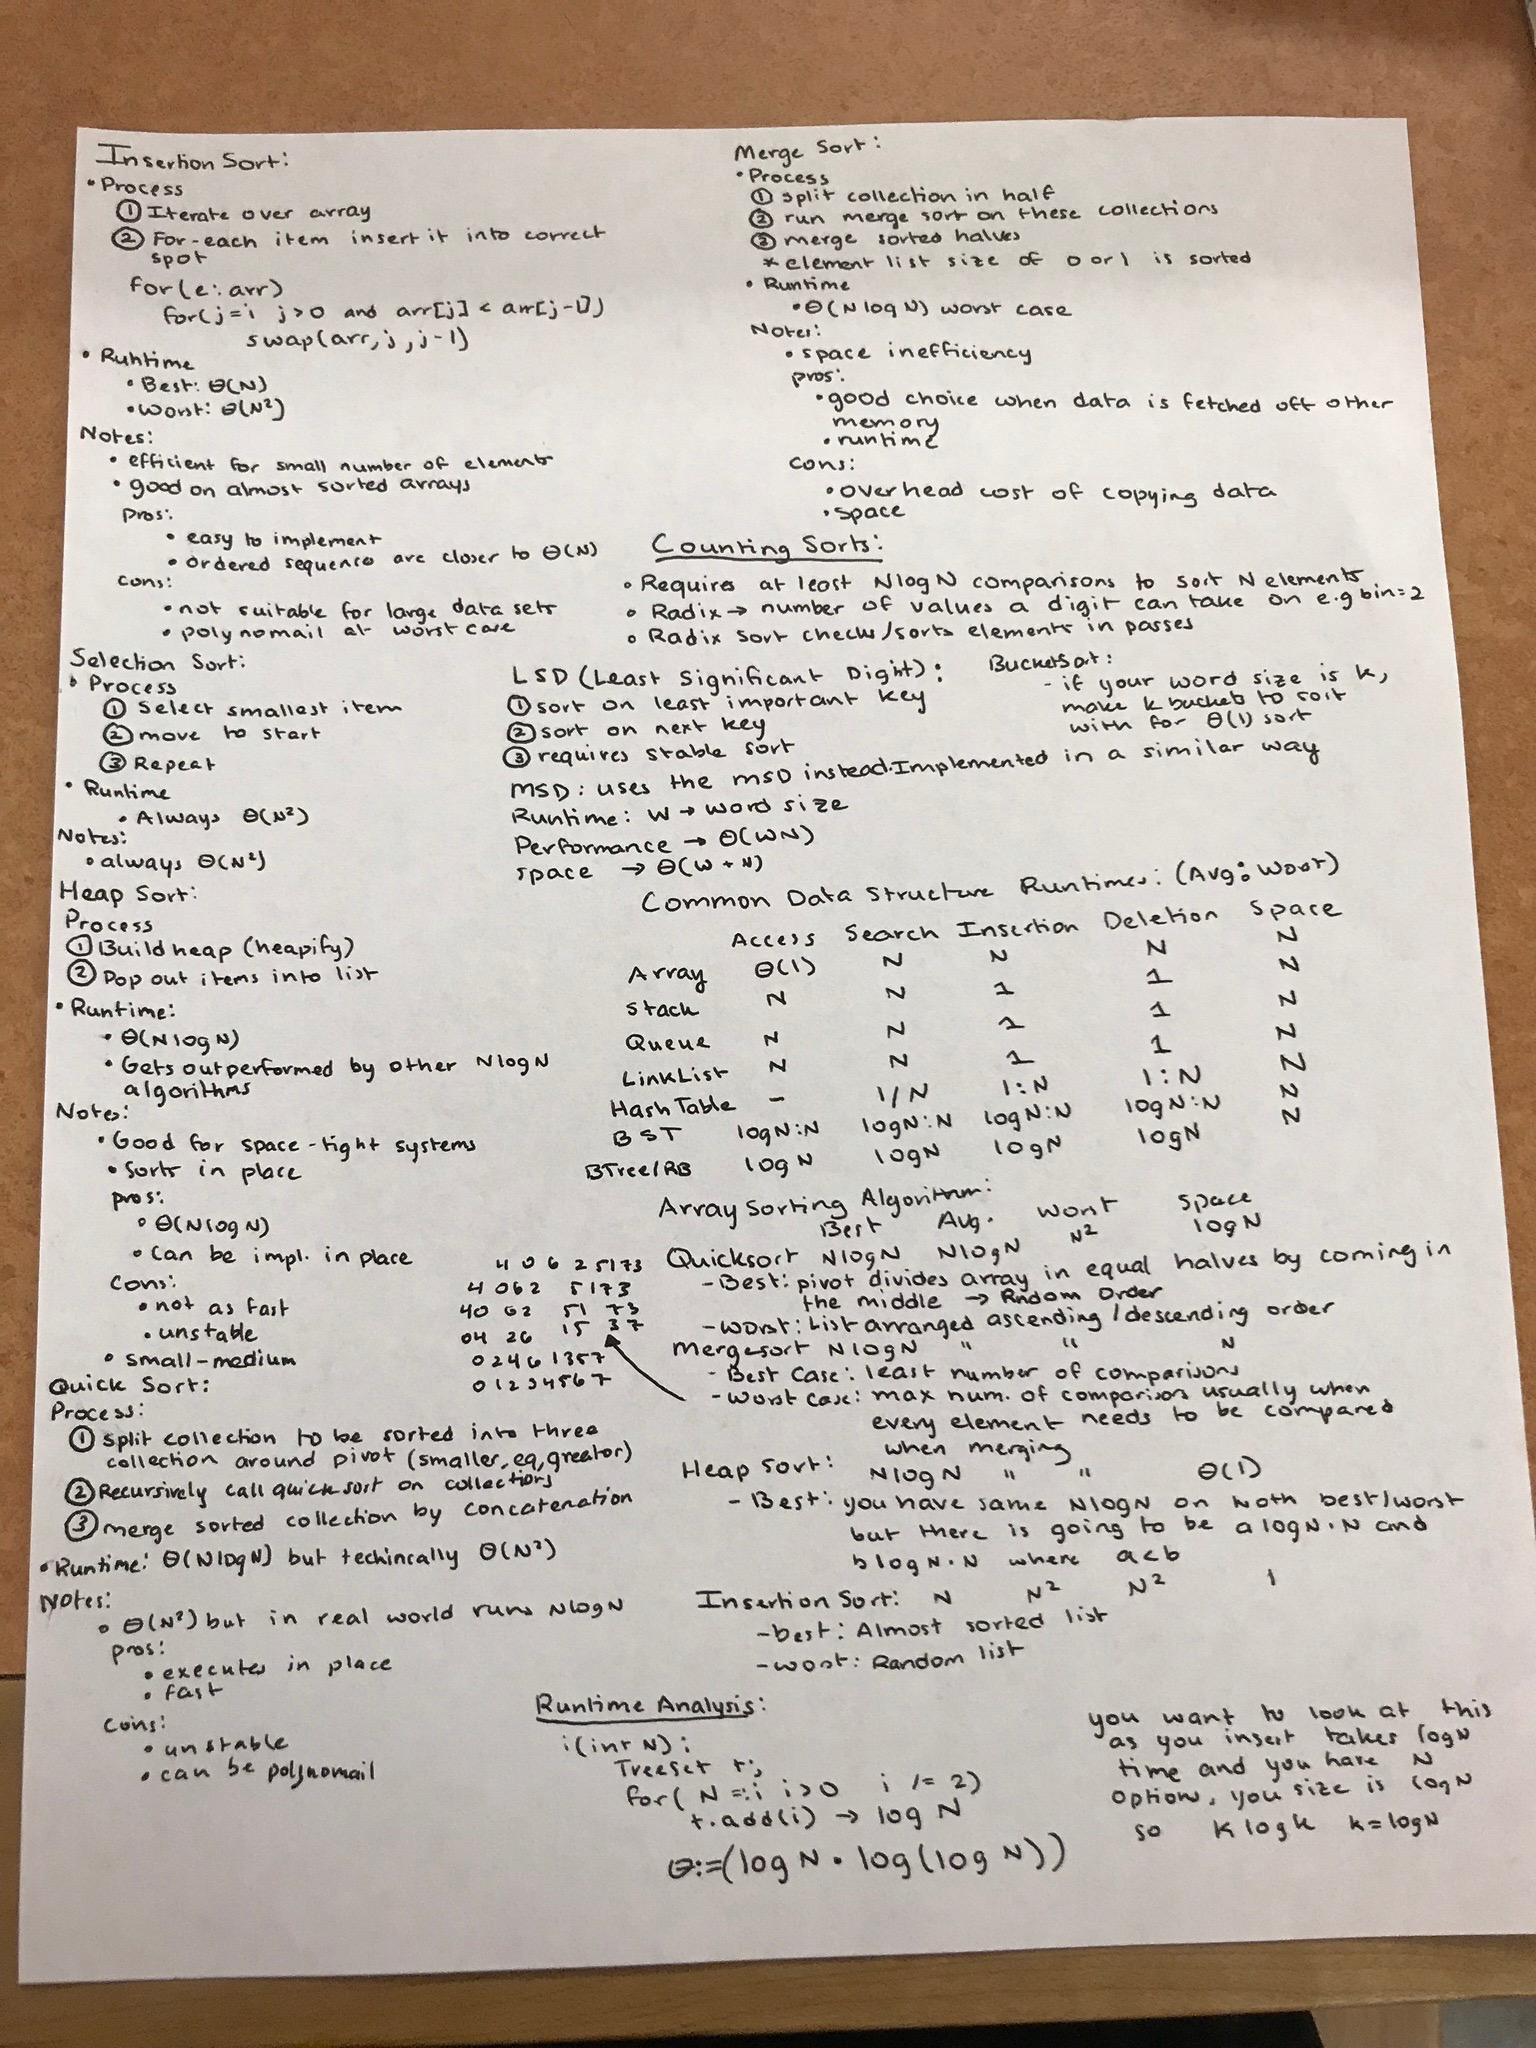 Insertion Sort:
• Process
① Iterate over array
② For-each item insert it into correct
spot
for(e: arr)
for(j=i j>0 and arr[j] < arr[j-1])
swap(arr, j, j-1)
• Runtime
• Best: Θ(N)
• Worst: Θ(N²)
Notes:
• efficient for small number of elements
• good on almost sorted arrays
Pros:
• easy to implement
• ordered sequence are closer to Θ(N)
cons:
• not suitable for large data sets
• polynomail at worst case
Selection Sort:
• Process
① Select smallest item
② move to start
③ Repeat
• Runtime
• Always Θ(N²)
Notes:
• always Θ(N²)
Heap Sort:
Process
① Build heap (heapify)
② Pop out items into list
• Runtime:
• Θ(N log N)
• Gets outperformed by other NlogN
algorithms
Notes:
• Good for space-tight systems
• sorts in place
pros:
• Θ(N log N)
• can be impl. in place
cons:
• not as fast
• unstable
• small-medium
Quick Sort:
Process:
① split collection to be sorted into three
collection around pivot (smaller, eq, greator)
② Recursively call quick sort on collections
③ merge sorted collection by concatenation
• Runtime: Θ(N log N) but techincally Θ(N²)
Notes:
• Θ(N²) but in real world runs NlogN
pros:
• executes in place
• fast
cons:
• unstable
• can be polynomail
Merge Sort:
• Process
① split collection in half
② run merge sort on these collections
③ merge sorted halves
* element list size of 0 or 1 is sorted
• Runtime
• Θ(N log N) worst case
Notes:
• space inefficiency
pros:
• good choice when data is fetched off other
memory
• runtime
cons:
• overhead cost of copying data
• space
Counting Sorts:
• Requires at least NlogN comparisons to sort N elements
• Radix → number of values a digit can take on e.g bin=2
• Radix Sort checks/sorts elements in passes
LSD (Least Significant Dight):
① sort on least important key
② sort on next key
③ requires stable sort
BucketSort:
- if your word size is k,
make k buckets to sort
with for Θ(1) sort
MSD: uses the MSD instead. Implemented in a similar way
Runtime: W → word size
Performance → Θ(WN)
space → Θ(W + N)
Common Data Structure Runtimes: (Avg: Worst)
Access Search Insertion Deletion Space
Array Θ(1) N N N N
Stack N N 1 1 N
Queue N N 1 1 N
LinkList N N 1 1 N
Hash Table - 1/N 1:N 1:N N
BST logN:N logN:N logN:N logN:N N
BTree/RB logN logN logN logN N
Array Sorting Algorithm:
Best Avg. Worst Space
Quicksort NlogN NlogN N² logN
- Best: pivot divides array in equal halves by coming in
the middle → Rndom Order
- Worst: List arranged ascending/descending order
Mergesort NlogN " " N
- Best Case: least number of comparisons
- Worst case: max num. of comparison usually when
every element needs to be compared
when merging
4 0 6 2 5173
4 062 5173
40 62 51 73
04 26 15 37
0246 1357
01234567
Heap Sort: NlogN " " Θ(1)
- Best: you have same NlogN on both best/worst
but there is going to be a logN·N and
b logN·N where a<b
Insertion Sort: N N² N² 1
- best: Almost sorted list
- worst: Random list
Runtime Analysis:
i(int N);
TreeSet t;
for( N =: i i>0 i /= 2)
t.add(i) → log N
Θ:=(log N · log(log N))
you want to look at this
as you insert takes logN
time and you have N
option, you size is logN
so K log K k=logN